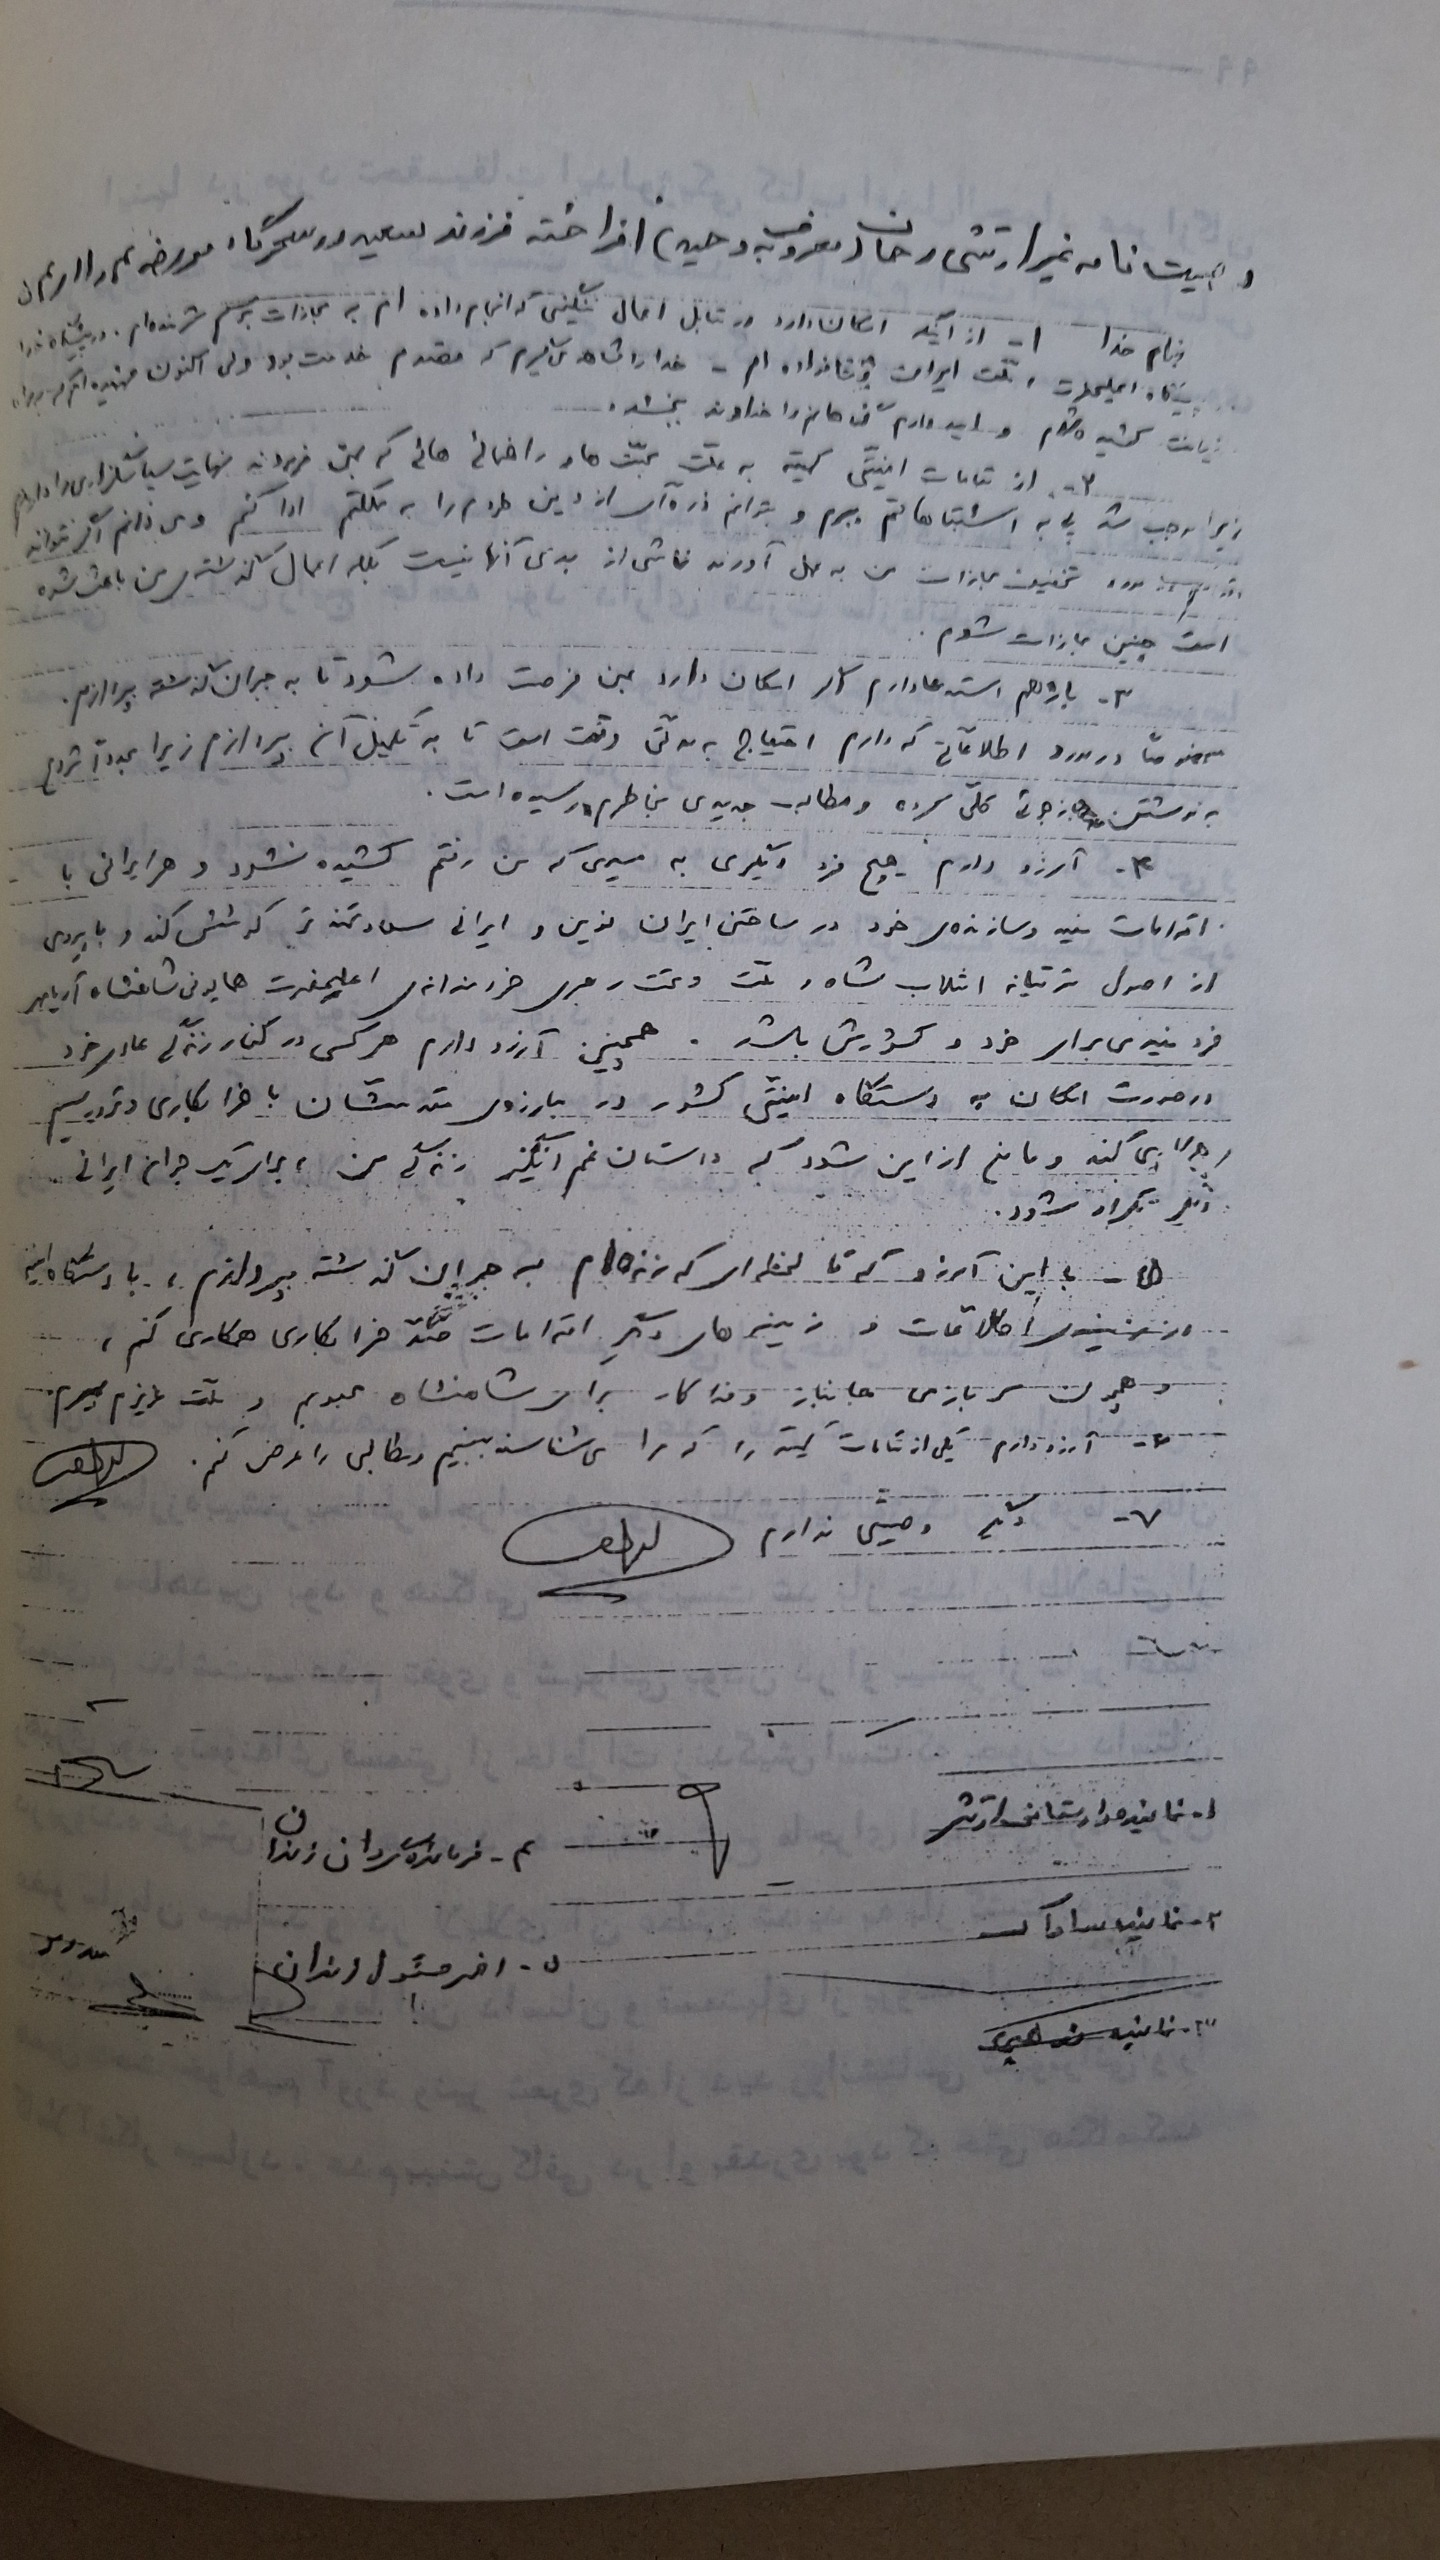 وصیت نامه غیر ارتشی رحمان (معروف به وحید) افراخته فرزند سعید در سحرگاه مورخه
بنام خدا ۱- از آنجا که امکان دارد در مقابل اعمال ننگینی که انجام داده ام به مجازات برسم شرمنده‌ام. در پیشگاه خدا
پیشگاه اعلیحضرت و ملت ایران و خانواده ام - خدا را شاهد می‌گیرم که مقصودم خدمت بود ولی اکنون فهمیده‌ام که
خیانت کشیده شدم و امیدوارم گناهانم را خداوند ببخشد.
۲- از مقامات امنیتی کمیته به علت محبت ها و راهنمائی هائی که بمن فرمودند نهایت سپاسگزاری را دارم
زیرا موجب شد پی به اشتباهاتم ببرم و بتوانم ذره‌ای از دین خودم را به مملکتم ادا کنم و می‌دانم اگر نتوانند
در مورد تخفیف مجازات من به عمل آورند ناشی از بدی آنها نیست بلکه اعمال گذشته‌ی من باعث شده
است چنین مجازات شوم.
۳- باز هم استدعا دارم اگر امکان دارد بمن فرصت داده شود تا به جبران گذشته بپردازم.
خصوصاً در مورد اطلاعاتی که دارم احتیاج به مدتی وقت است تا به تکمیل آن بپردازم زیرا مجدداً شروع
به نوشتن بازجوئی کلی کرده و مطالب جدیدی بخاطرم رسیده است.
۴- آرزو دارم هیچ فرد دیگری به مسیری که من رفتم کشیده نشود و هر ایرانی با
اقدامات مفید و سازنده‌ی خود در ساختن ایران نوین و ایرانی سعادتمندتر کوشش کند و با پیروی
از اصول مترقیانه انقلاب شاه و ملت و تحت رهبری خردمندانه‌ی اعلیحضرت همایونی شاهنشاه آریامهر
فرد مفیدی برای خود و کشورش باشد. همچنین آرزو دارم هر کسی در کنار زندگی عادی خود
در صورت امکان به دستگاه امنیتی کشور در مبارزه‌ی مقدسشان با خرابکاری و تروریسم
همراهی کند و مانع از این شود که داستان غم انگیز زندگی من، برای یک جوان ایرانی
دیگر تکرار شود.
۵- با این آرزو که تا لحظه‌ای که زنده‌ام به جبران گذشته بپردازم، با دستگاه امنیتی
در زمینه‌ی اطلاعات و زمینه های دیگر اقدامات ضد خرابکاری همکاری کنم،
و همچون سربازی جانباز و فداکار برای شاهنشاه محبوبم و ملت عزیزم بمیرم.
۶- آرزو دارم یکی از مقامات کمیته را که مرا می‌شناسند ببینم و مطالبی را عرض کنم.
۷- دیگر وصیتی ندارم
۱- نماینده دادستانی ارتش
۴- فرمانده گردان زندان
۲- نماینده ساواک
۵- افسر مسئول زندان
۳- نماینده